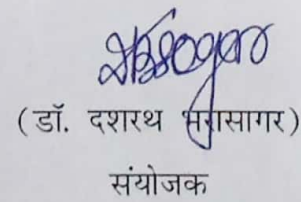 (डॉ. दशरथ भरासागर)
संयोजक